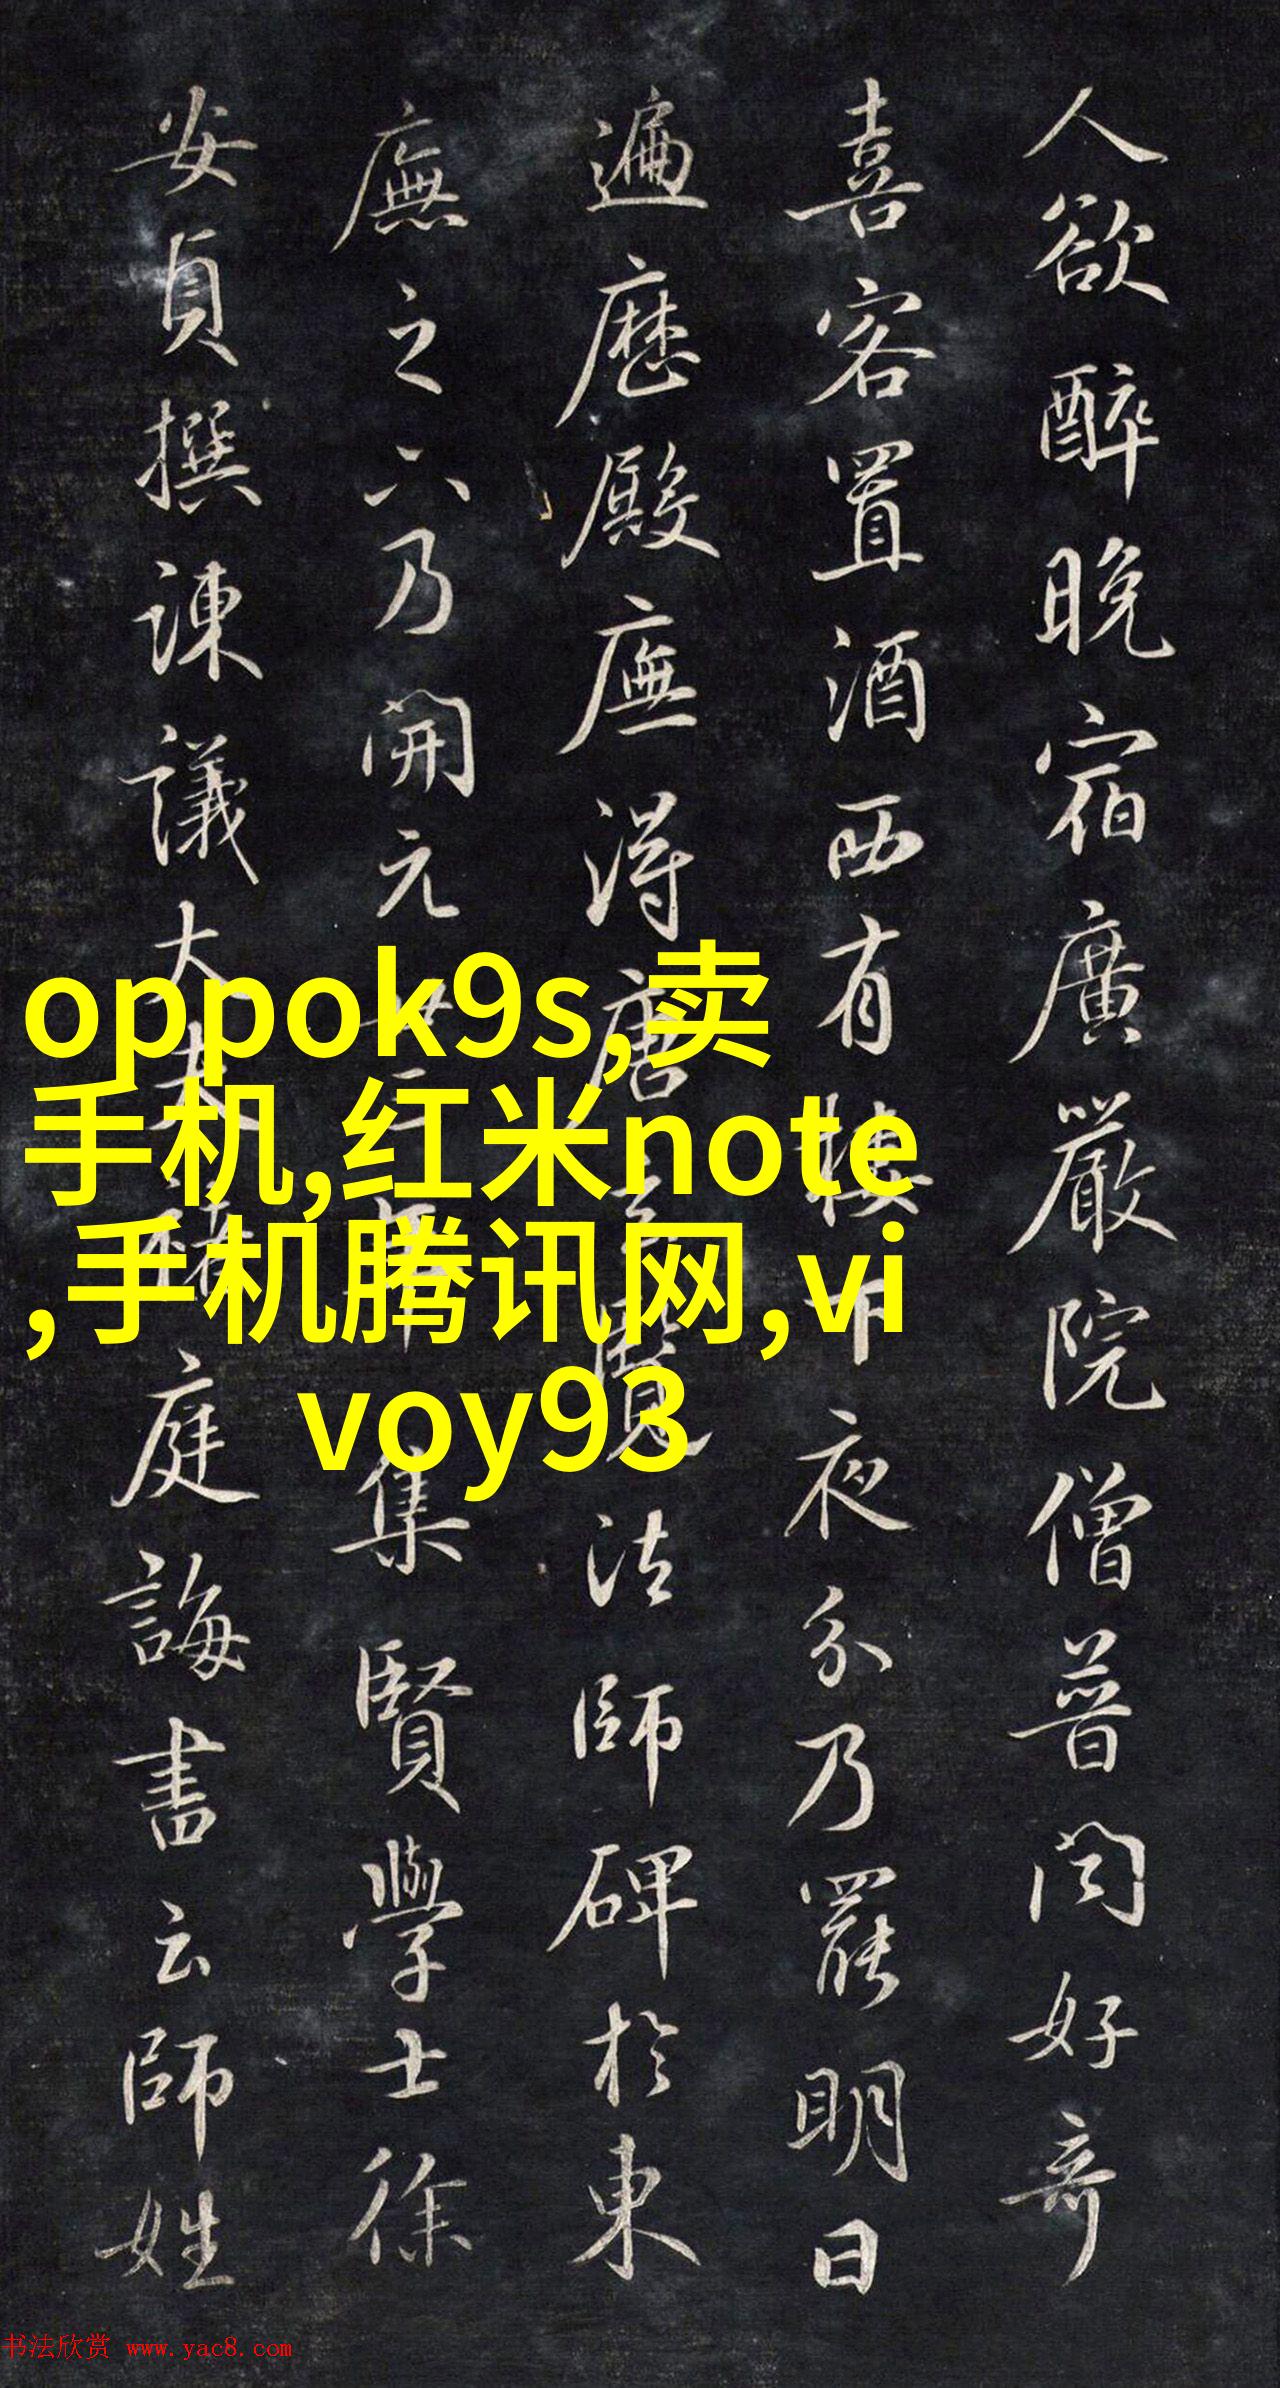 人欲醉晚宿廣嚴院僧普闻好奇
喜客置酒西有樓下夜分乃罷明日
遍歷殿廡得唐玄覽法師碑於東
廡之下乃開元廿三年集賢學士徐
安貞撰諫議大夫褚庭誨書云師姓
oppok9s,卖
手机,红米note
,手机腾讯网,vi
voy93
书法欣赏 www.yac8.com